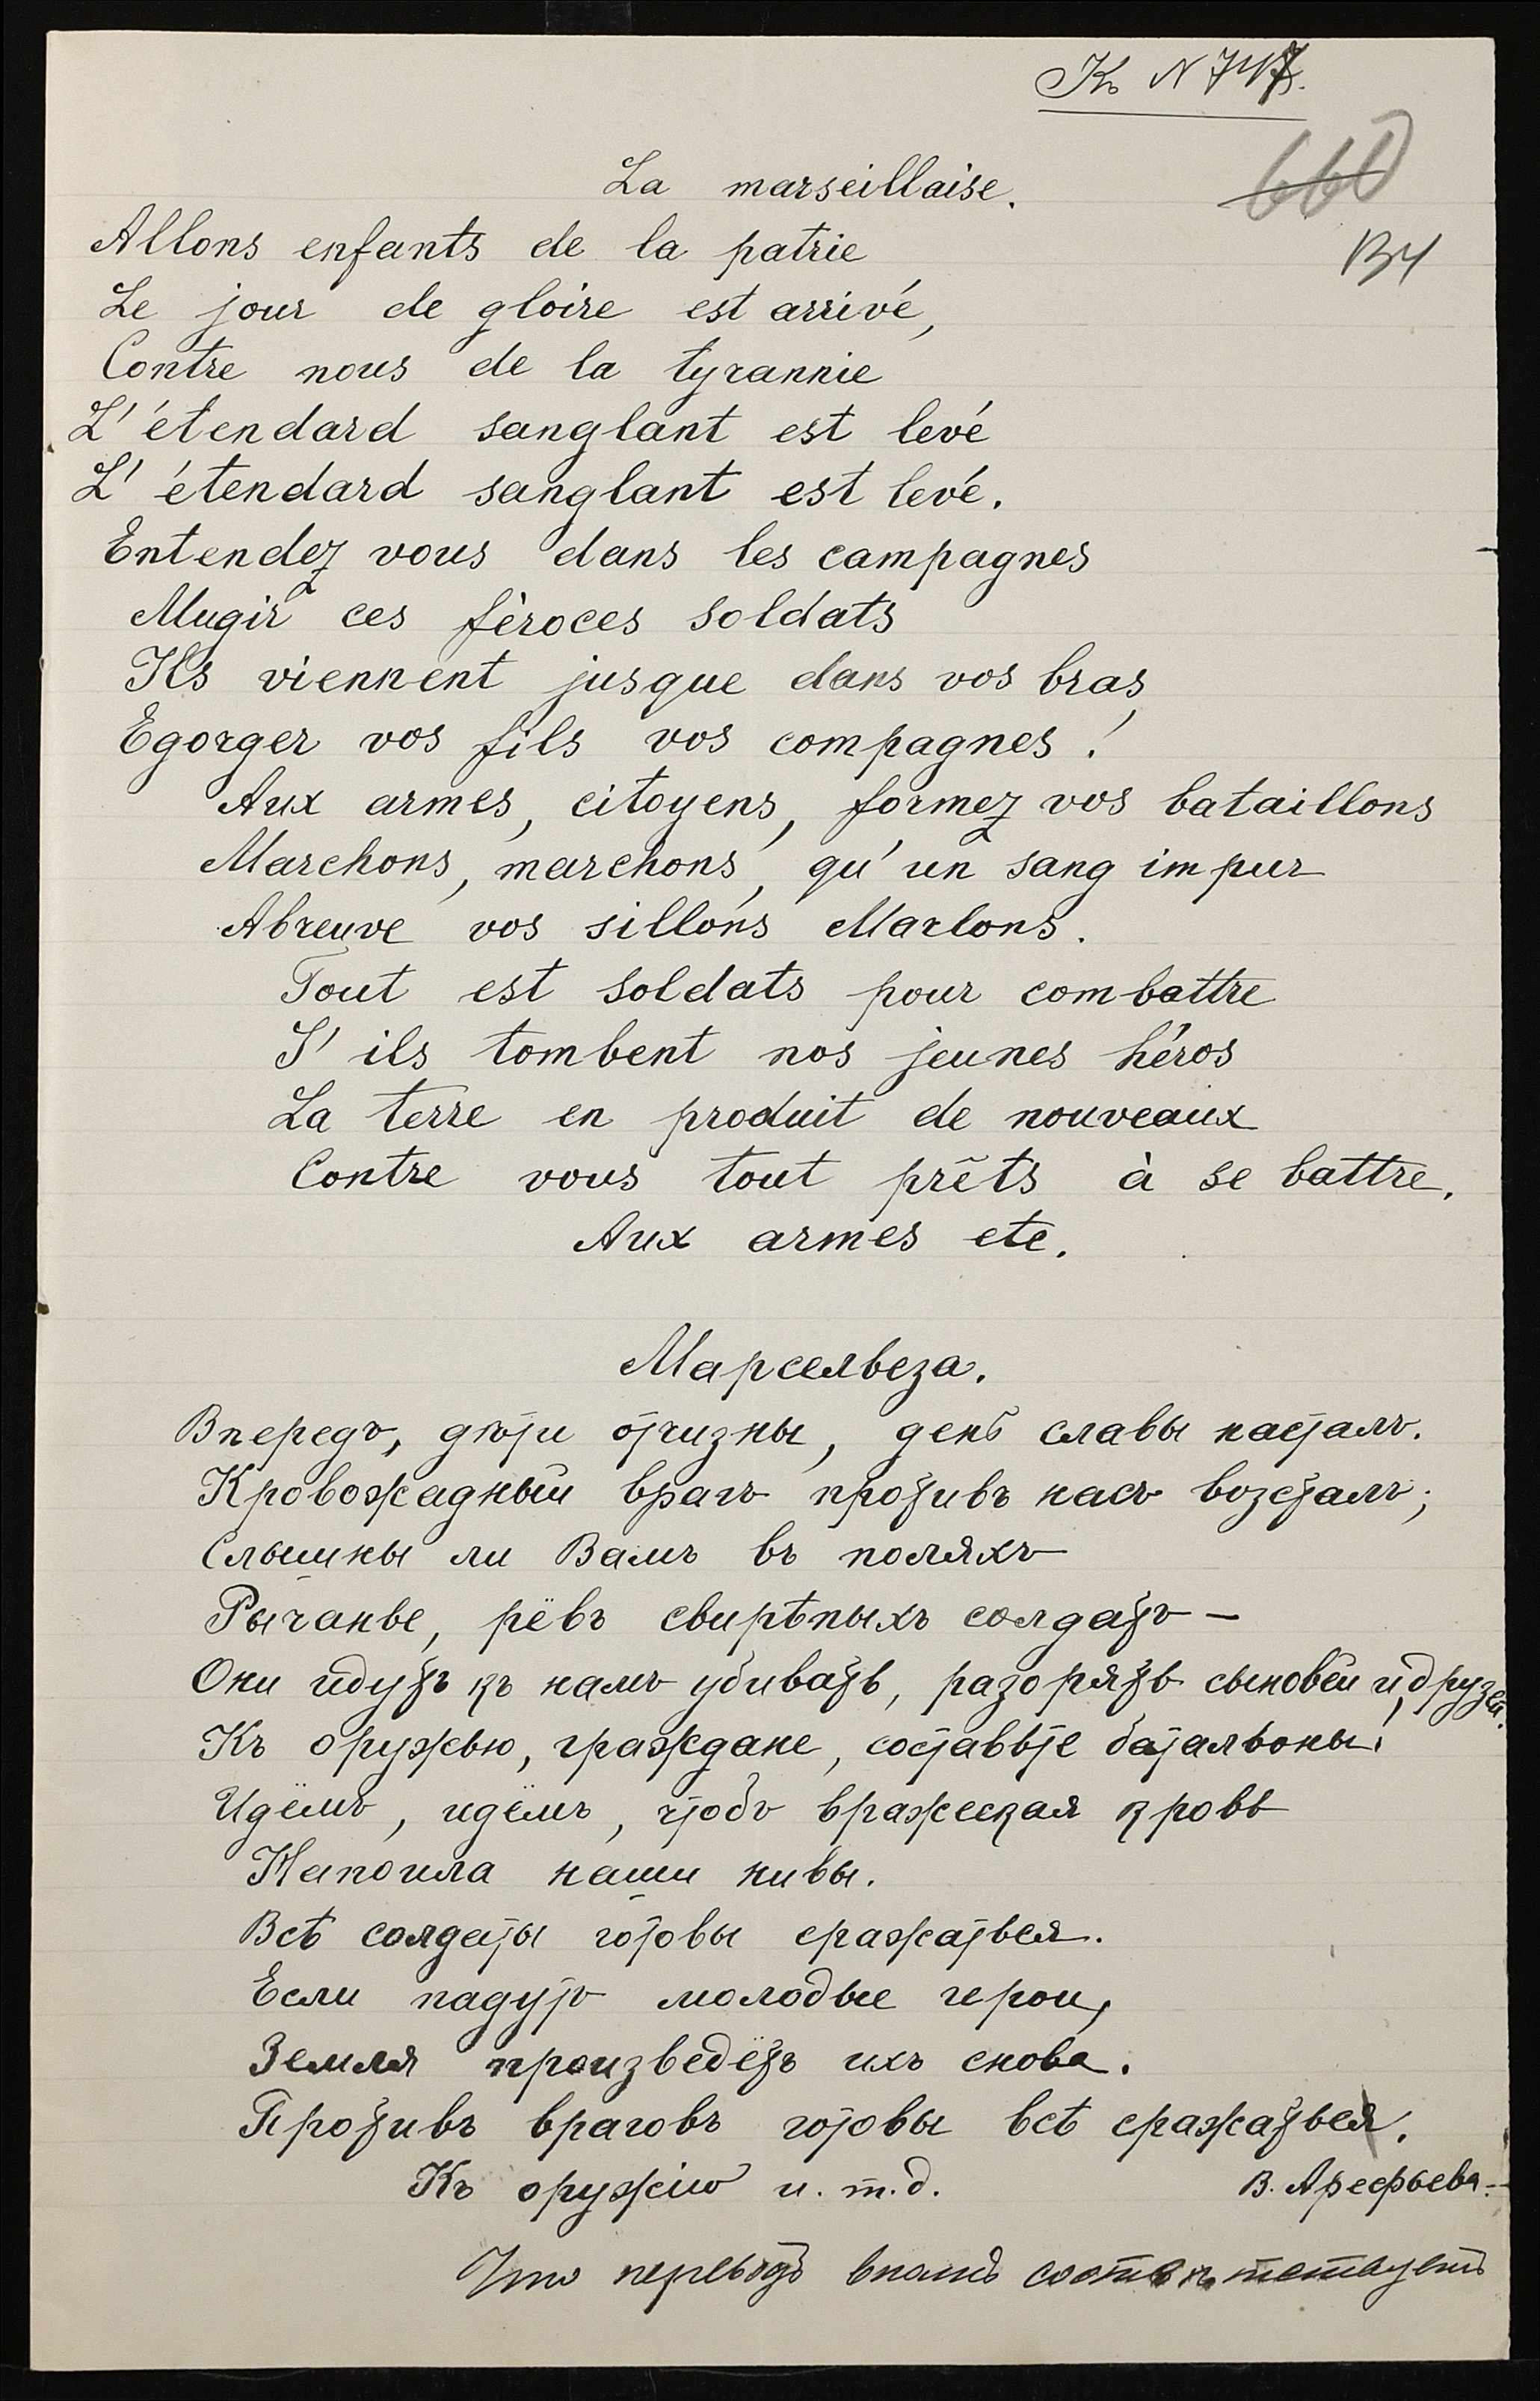 Къ N 747.
660
134
La marseillaise.
Allons enfants de la patrie
Le jour de gloire est arrivé,
Contre nous de la tyrannie
L' étendard sanglant est levé
L' étendard sanglant est levé.
Entendez vous dans les campagnes
Mugir ces fèroces soldats
Ils viennent jusque dans vos bras,
Egorger vos fils vos compagnes!
Aux armes, citoyens, formez vos bataillons
Marchons, marchons, qu' un sang impur
Abreuve vos sillons Marlons.
Tout est soldats pour combattre
S' ils tombent nos jeunes héros
La terre en produit de nouveaux
Contre vous tout prêts à se battre.
Aux armes etc.
Марсельеза.
Впередъ, дѣти отчизны, день славы насталъ.
Кровожадный врагъ противъ насъ возсталъ;
Слышны ли Вамъ въ поляхъ
Рычанье, рёвъ свирѣпыхъ солдатъ —
Они идутъ къ намъ убивать, разорять сыновей и друзей.
Къ оружью, граждане, составьте батальоны!
Идёмъ, идёмъ, чтобъ вражеская кровь
Напоила наши нивы.
Всѣ солдаты готовы сражаться.
Если падутъ молодые герои,
Земля произведётъ ихъ снова.
Противъ враговъ готовы всѣ сражаться.
Къ оружію и. т. д.
В. Арефьева.
Что переводъ вполнѣ